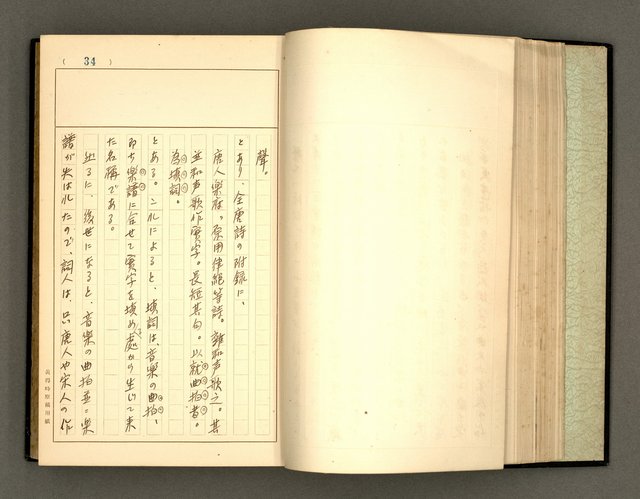 ( 34 )
聲。
とあり、全唐詩の附録に、
唐人樂府、原用律絕等詩。雜和声歌之。其
並和声歌作實字。長短其句。以就曲拍者。
為塡詞。
とある。これによると、塡詞は、音樂の曲拍、
即ち樂譜に合せて實字を塡める處から生じて来
た名稱である。
然るに、後世になると、音樂の曲拍並に樂
譜が失はれたので、詞人は、只唐人や宋人の作
黃得時原稿用紙